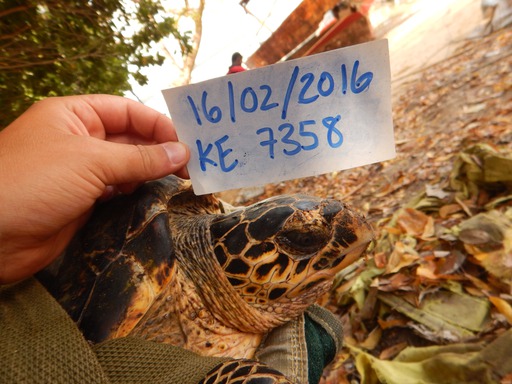 16/02/2016
KE 7358